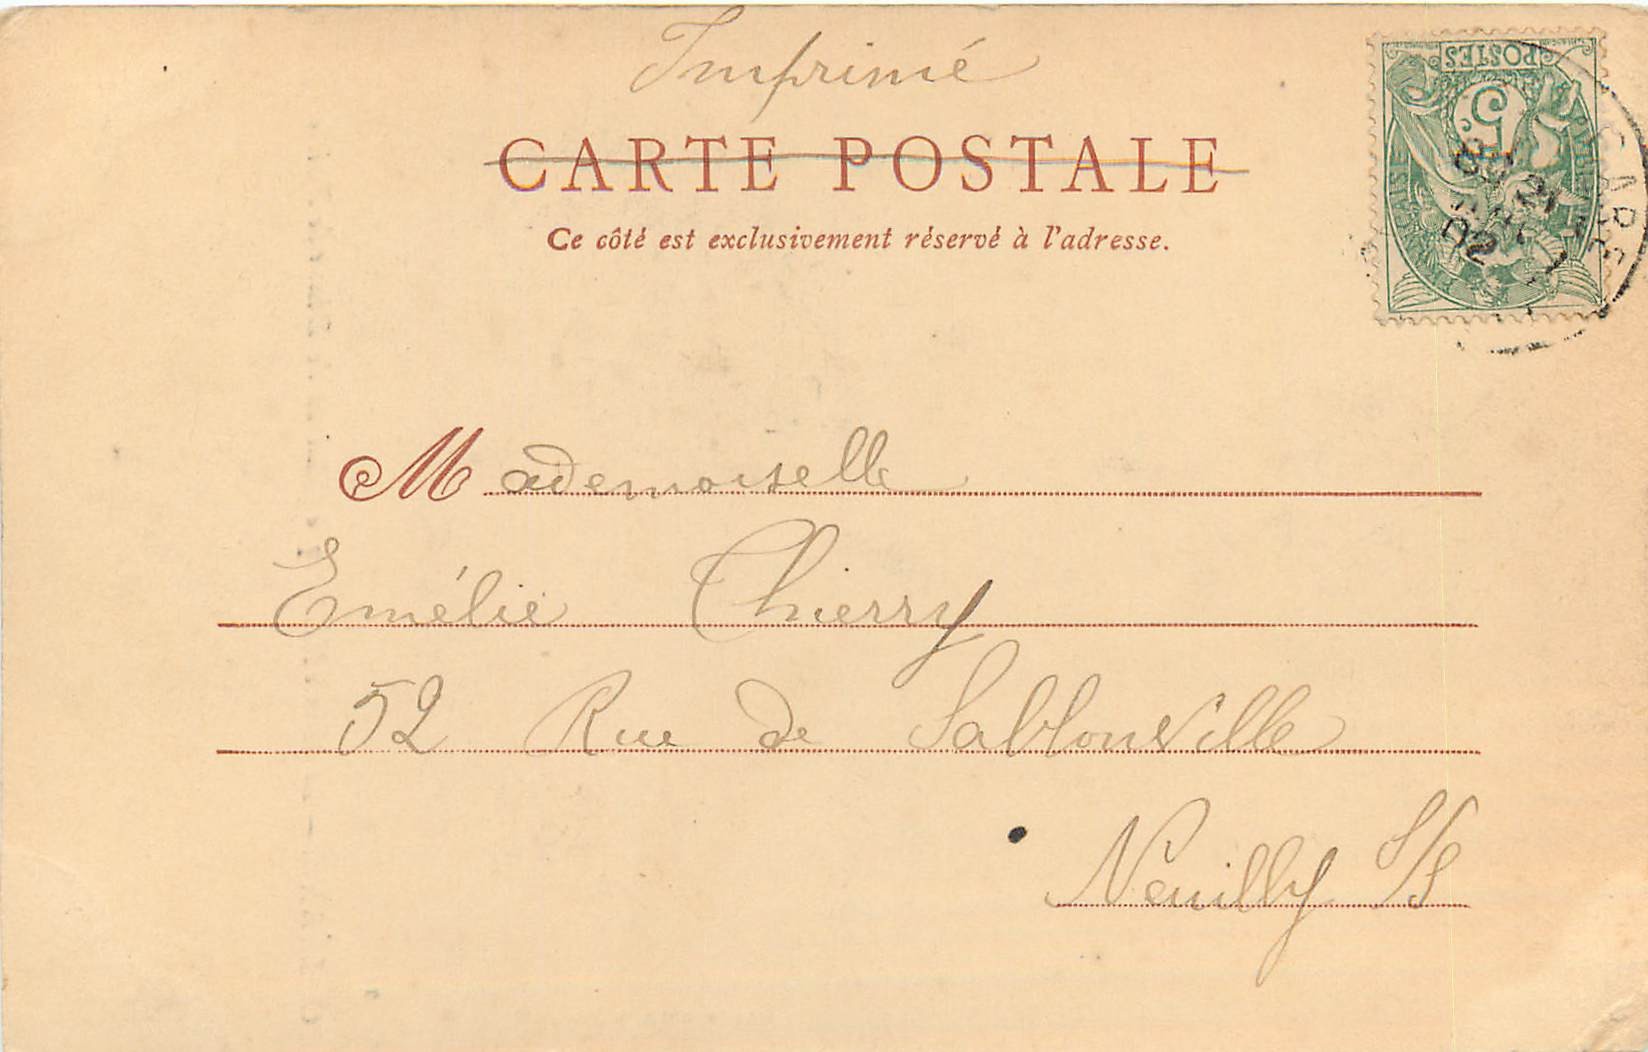 Imprimé
CARTE POSTALE
Ce côté est exclusivement réservé à l'adresse.
POSTES
5
02
Mademoiselle
Emélie Thierry
52 Rue de Sablonville
Neuilly S/S